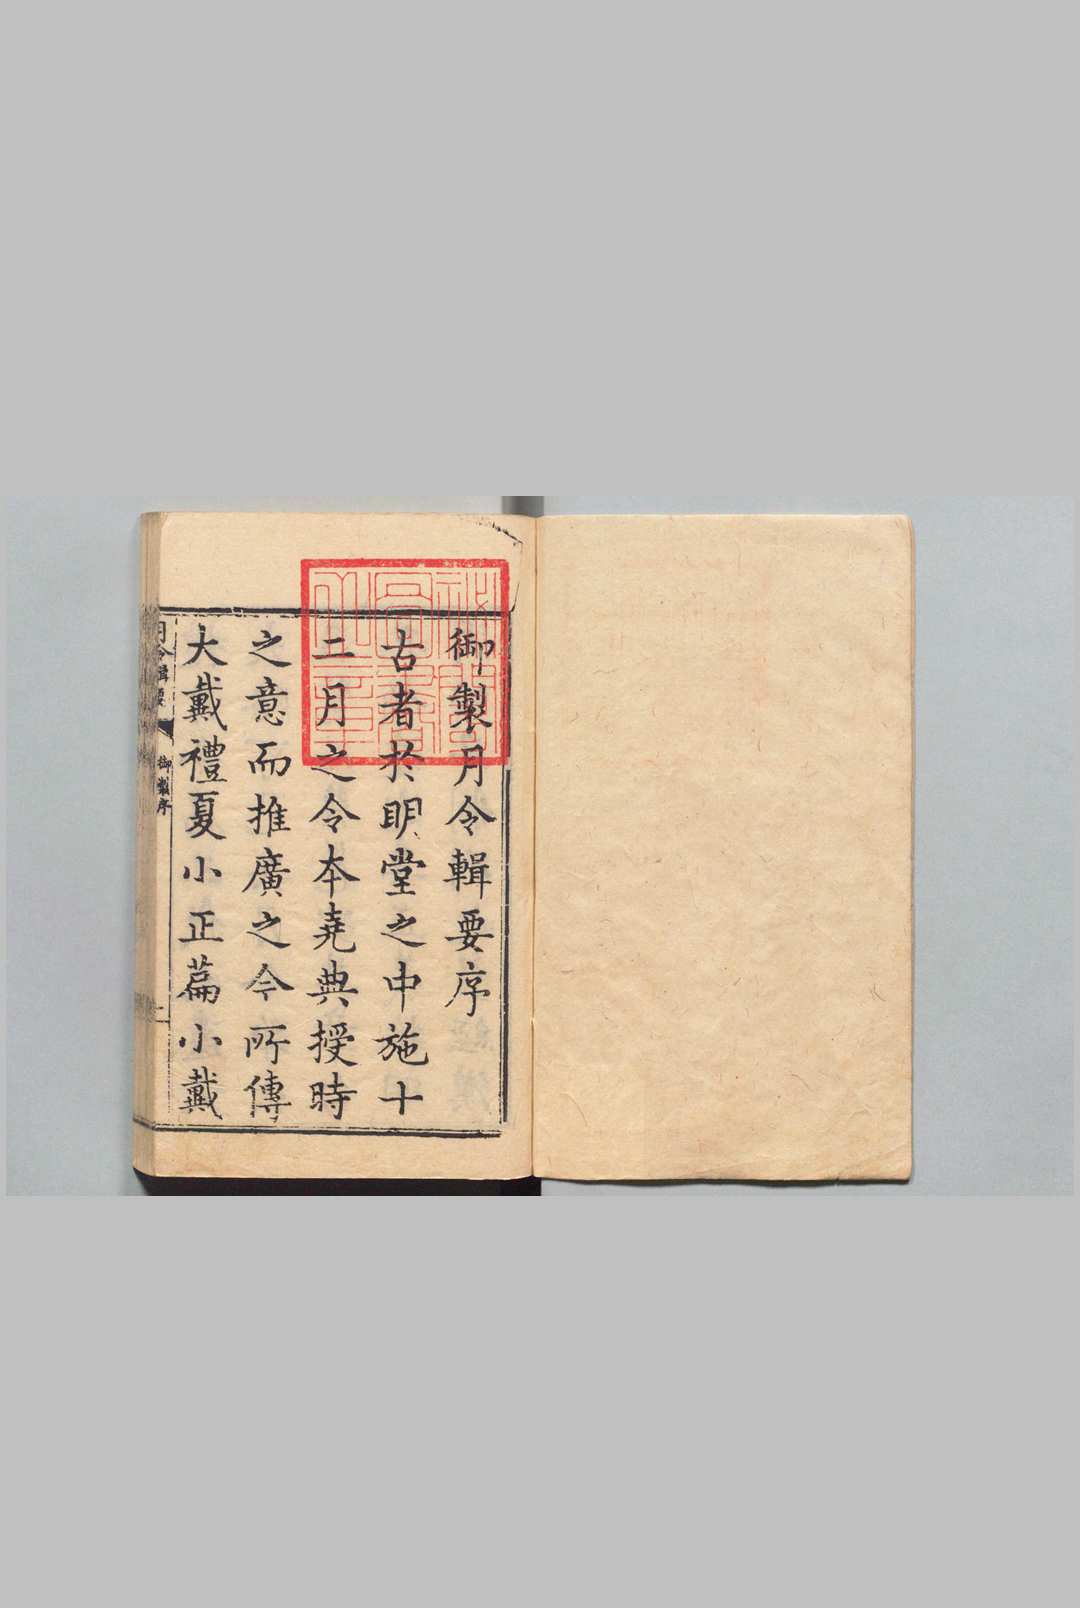 御製月令輯要序
古者於明堂之中施十
二月之令本堯典授時
之意而推廣之今所傳
大戴禮夏小正篇小戴
月令輯要
御製序